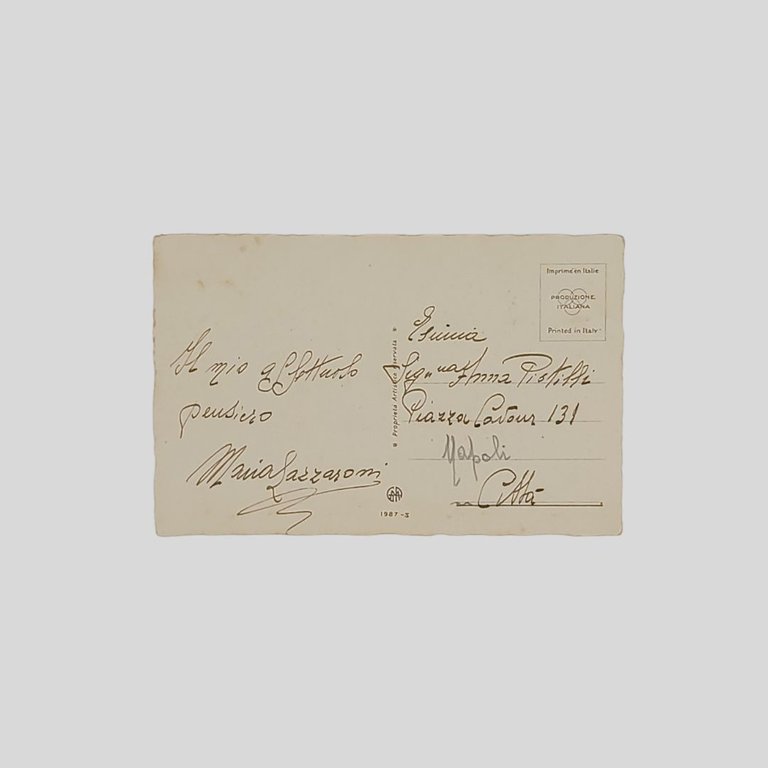 Il mio affettuoso
pensiero
Maria Lazzaroni
Proprietà Artistica Riservata
1987-3
Imprimé en Italie
PRODUZIONE
ITALIANA
Printed in Italy
Esimia
Sig.na Anna Pistilli
Piazza Cavour 131
Napoli
Città